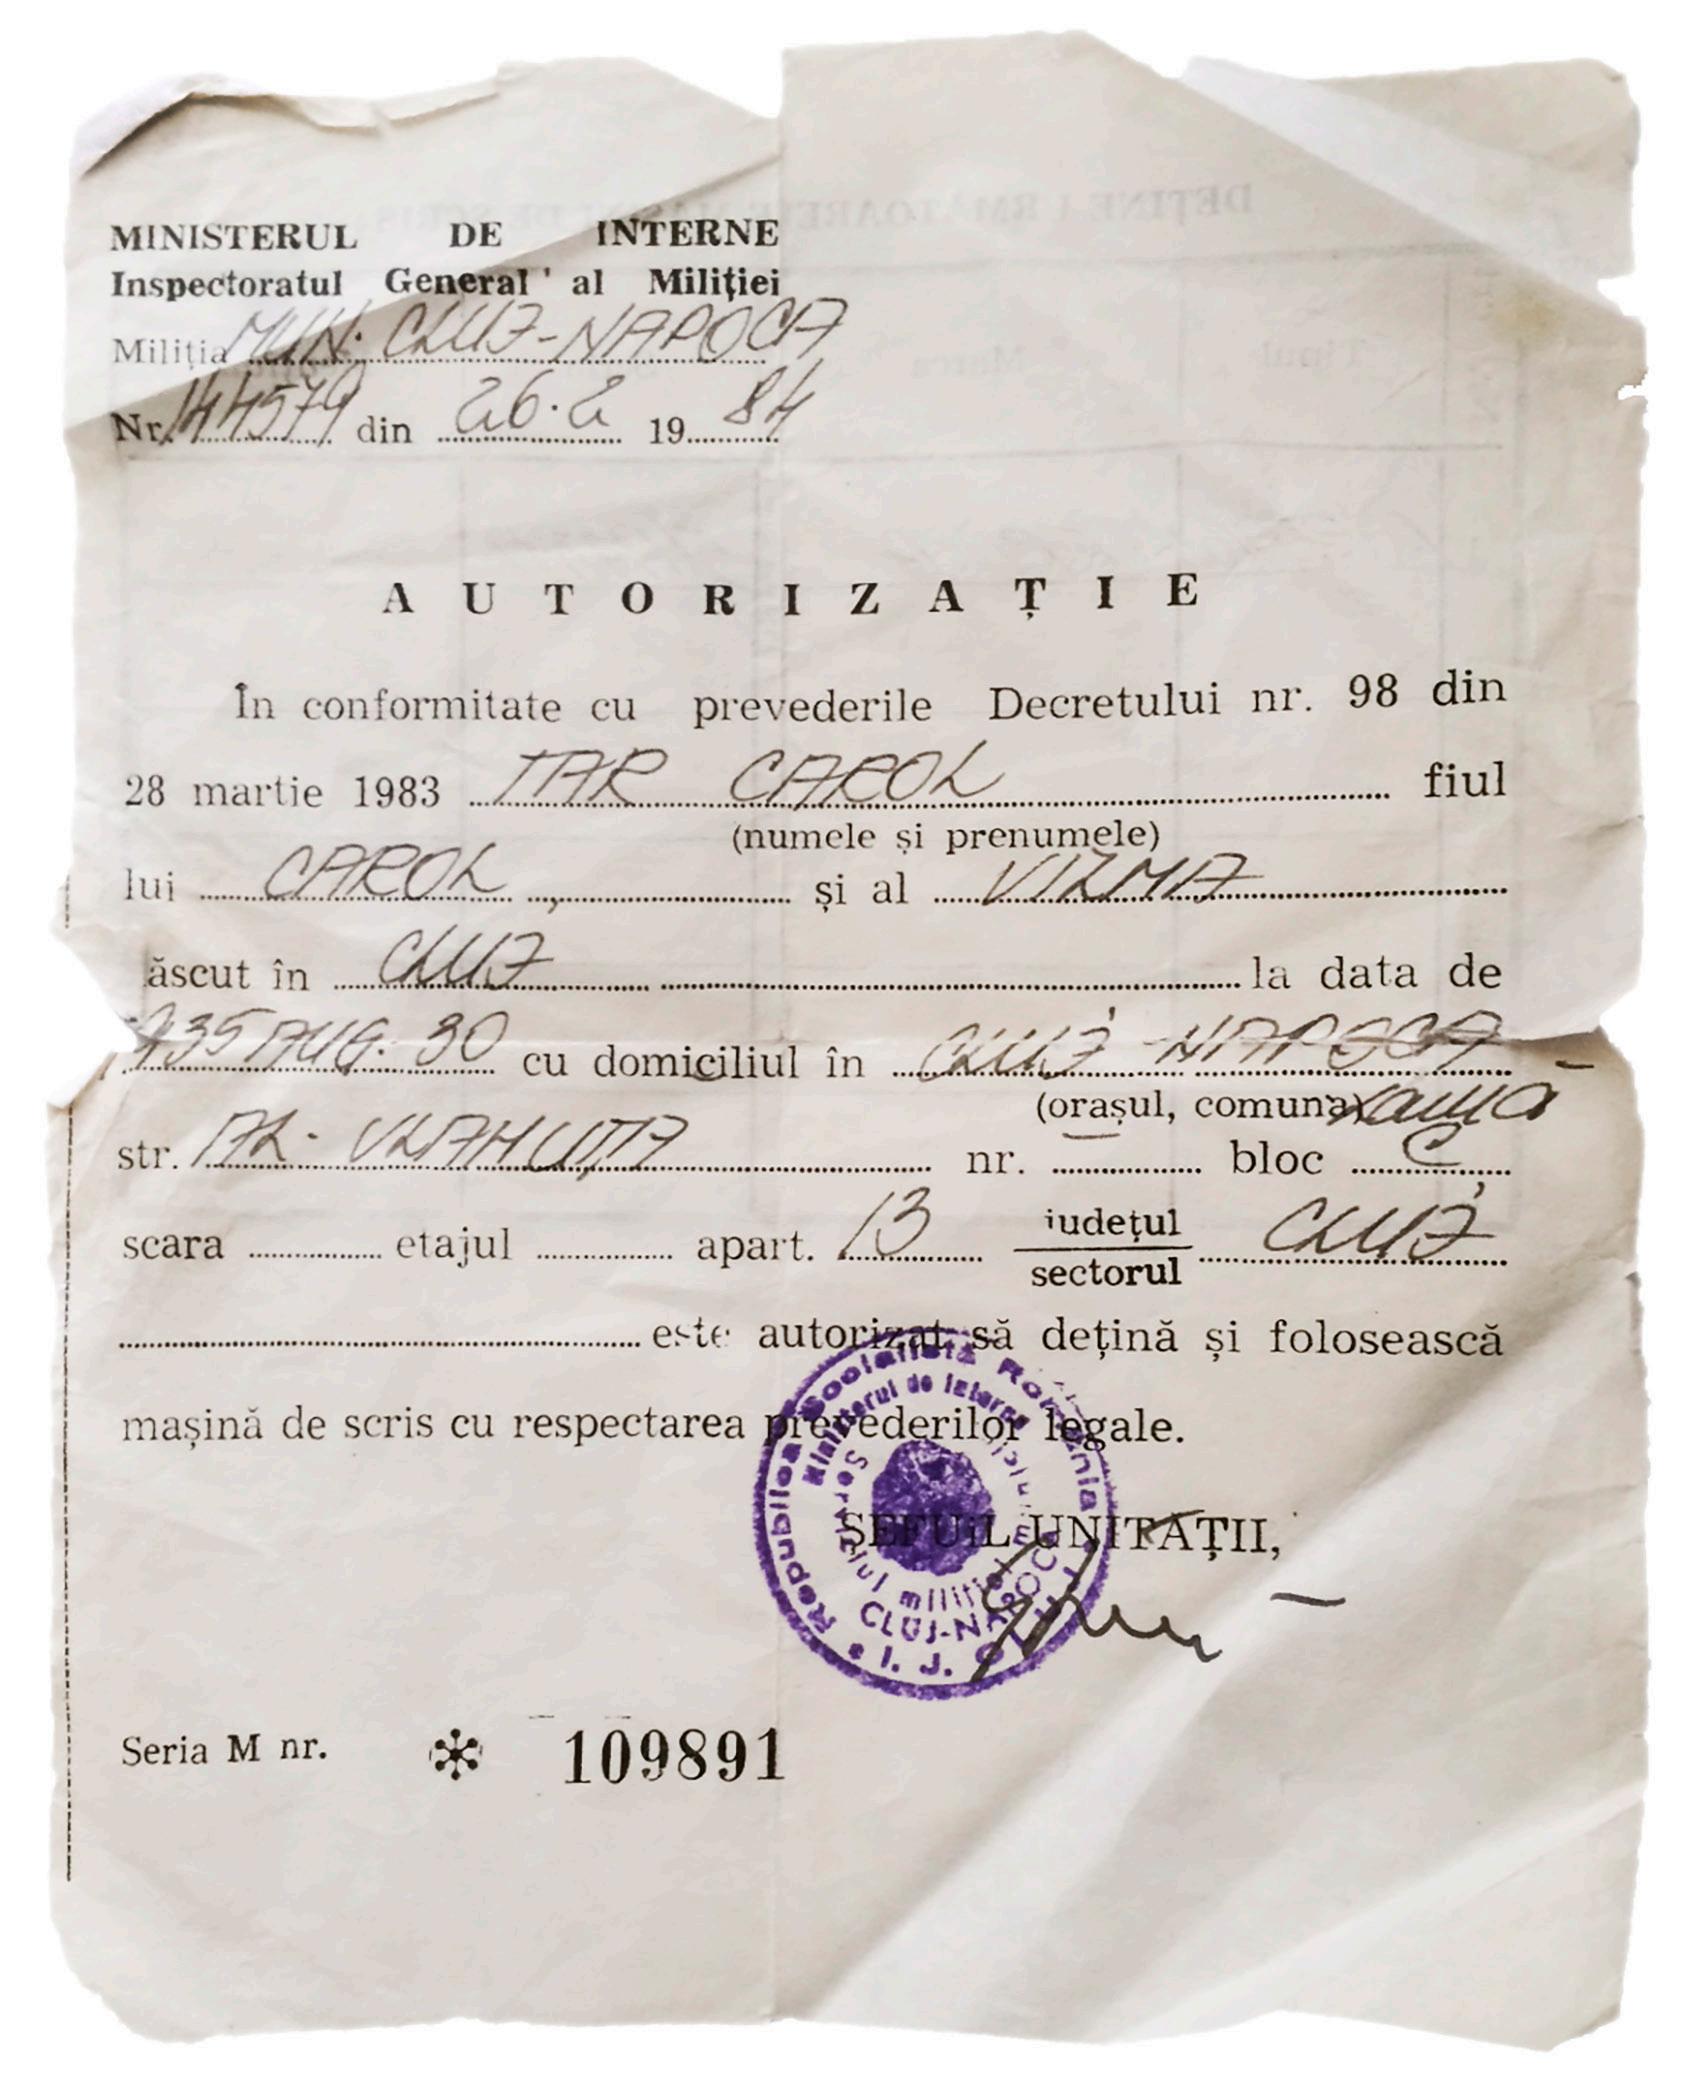 MINISTERUL DE INTERNE
Inspectoratul General al Miliției
Miliția MUN. CLUJ-NAPOCA
Nr. 144579 din 26.2 1984
AUTORIZAȚIE
În conformitate cu prevederile Decretului nr. 98 din
28 martie 1983 TAR CAROL fiul
(numele și prenumele)
lui CAROL și al VILMA
ăscut în CLUJ la data de
935 AUG. 30 cu domiciliul în CLUJ-NAPOCA
(orașul, comuna)
str. AL. VLAHUȚA nr. — bloc C
scara etajul apart. 13 județul CLUJ
sectorul
este autorizat să dețină și folosească
mașină de scris cu respectarea prevederilor legale.
ȘEFUL UNITĂȚII,
Republica Socialistă România
Ministerul de Interne
Serviciul miliției
CLUJ-NAPOCA
I. J.
Seria M nr. 109891
DEȚINE URMĂTOARELE DE SCRIS
Tipul Marca